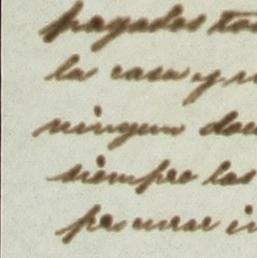 pagados to
la casa y n
ningun doc
siempre las
procurar in